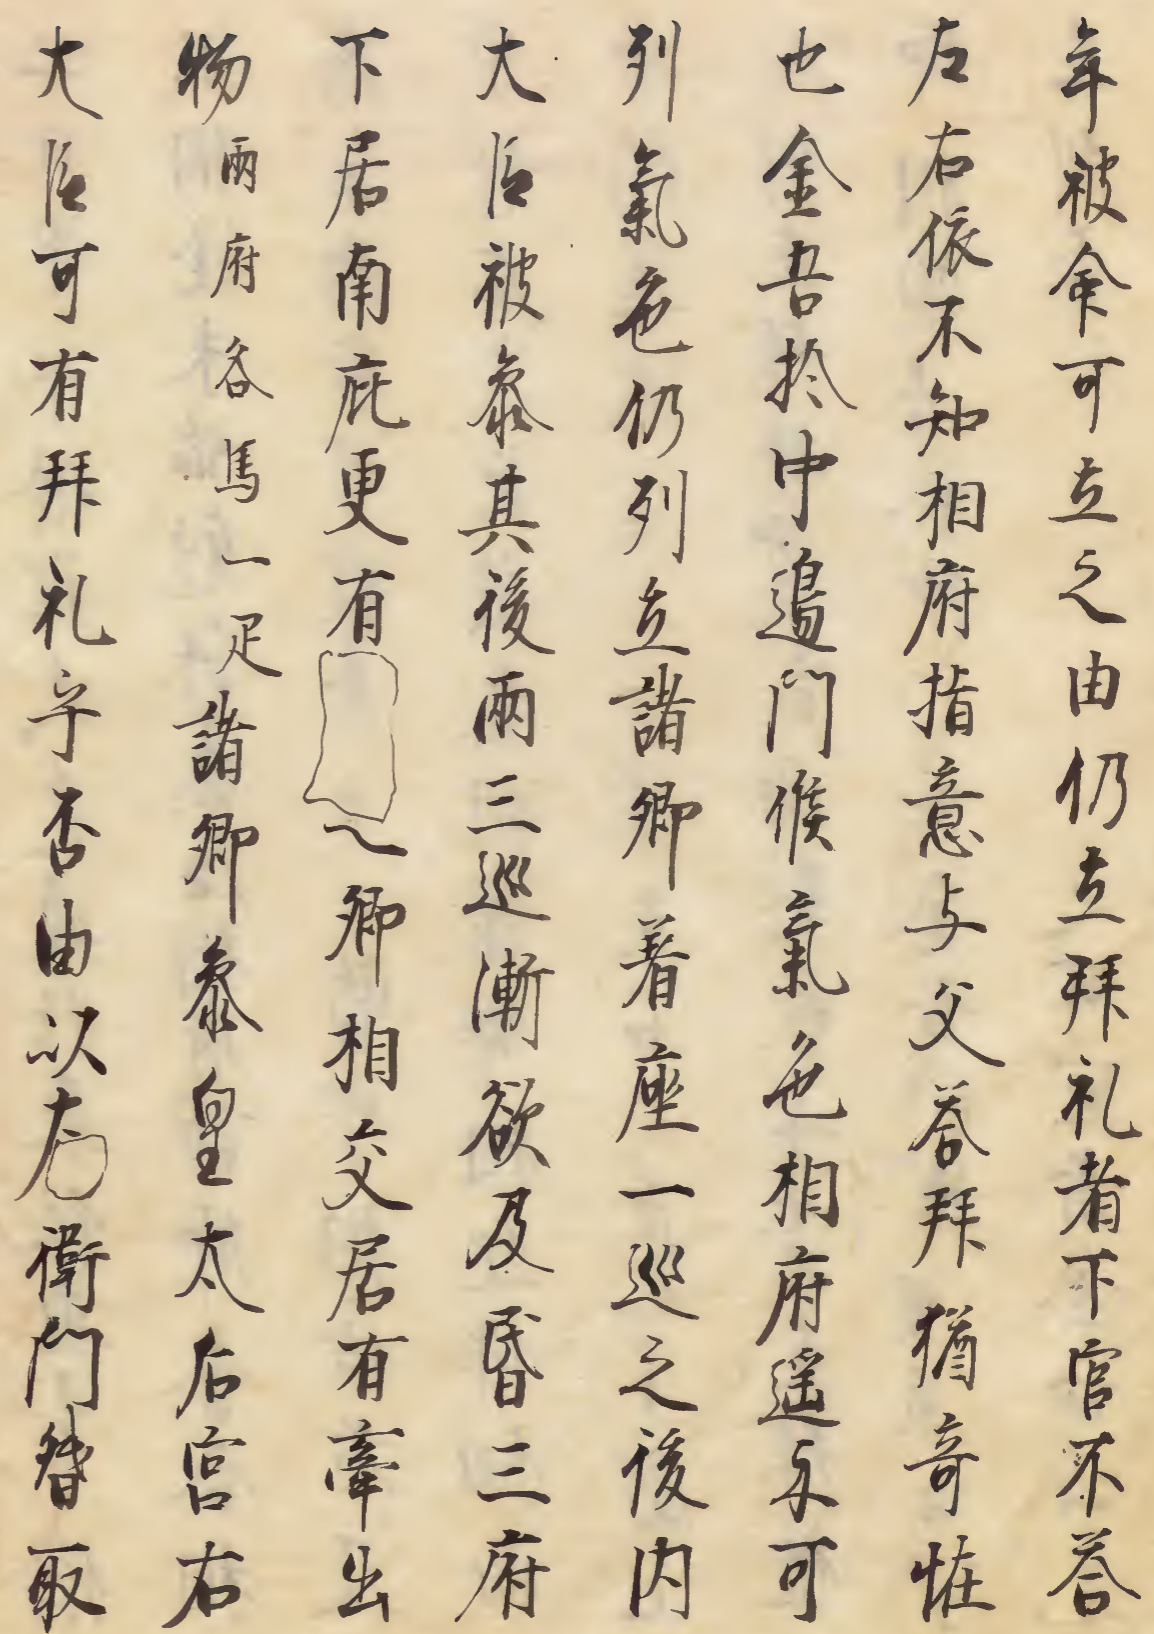 年被命可立之由仍立拜礼者下官不荅
左右依不知相府指意与父荅拜猶奇恠
也金吾於中邉門候氣色相府遥示可
列氣色仍列立諸卿着座一巡之後内
大臣被叅其後兩三巡漸欲及昏三府
下居南庇更有卿相交居有牽出
物兩府各馬一疋諸卿叅皇太后宮右
大臣可有拜礼乎否由以左衛門督取